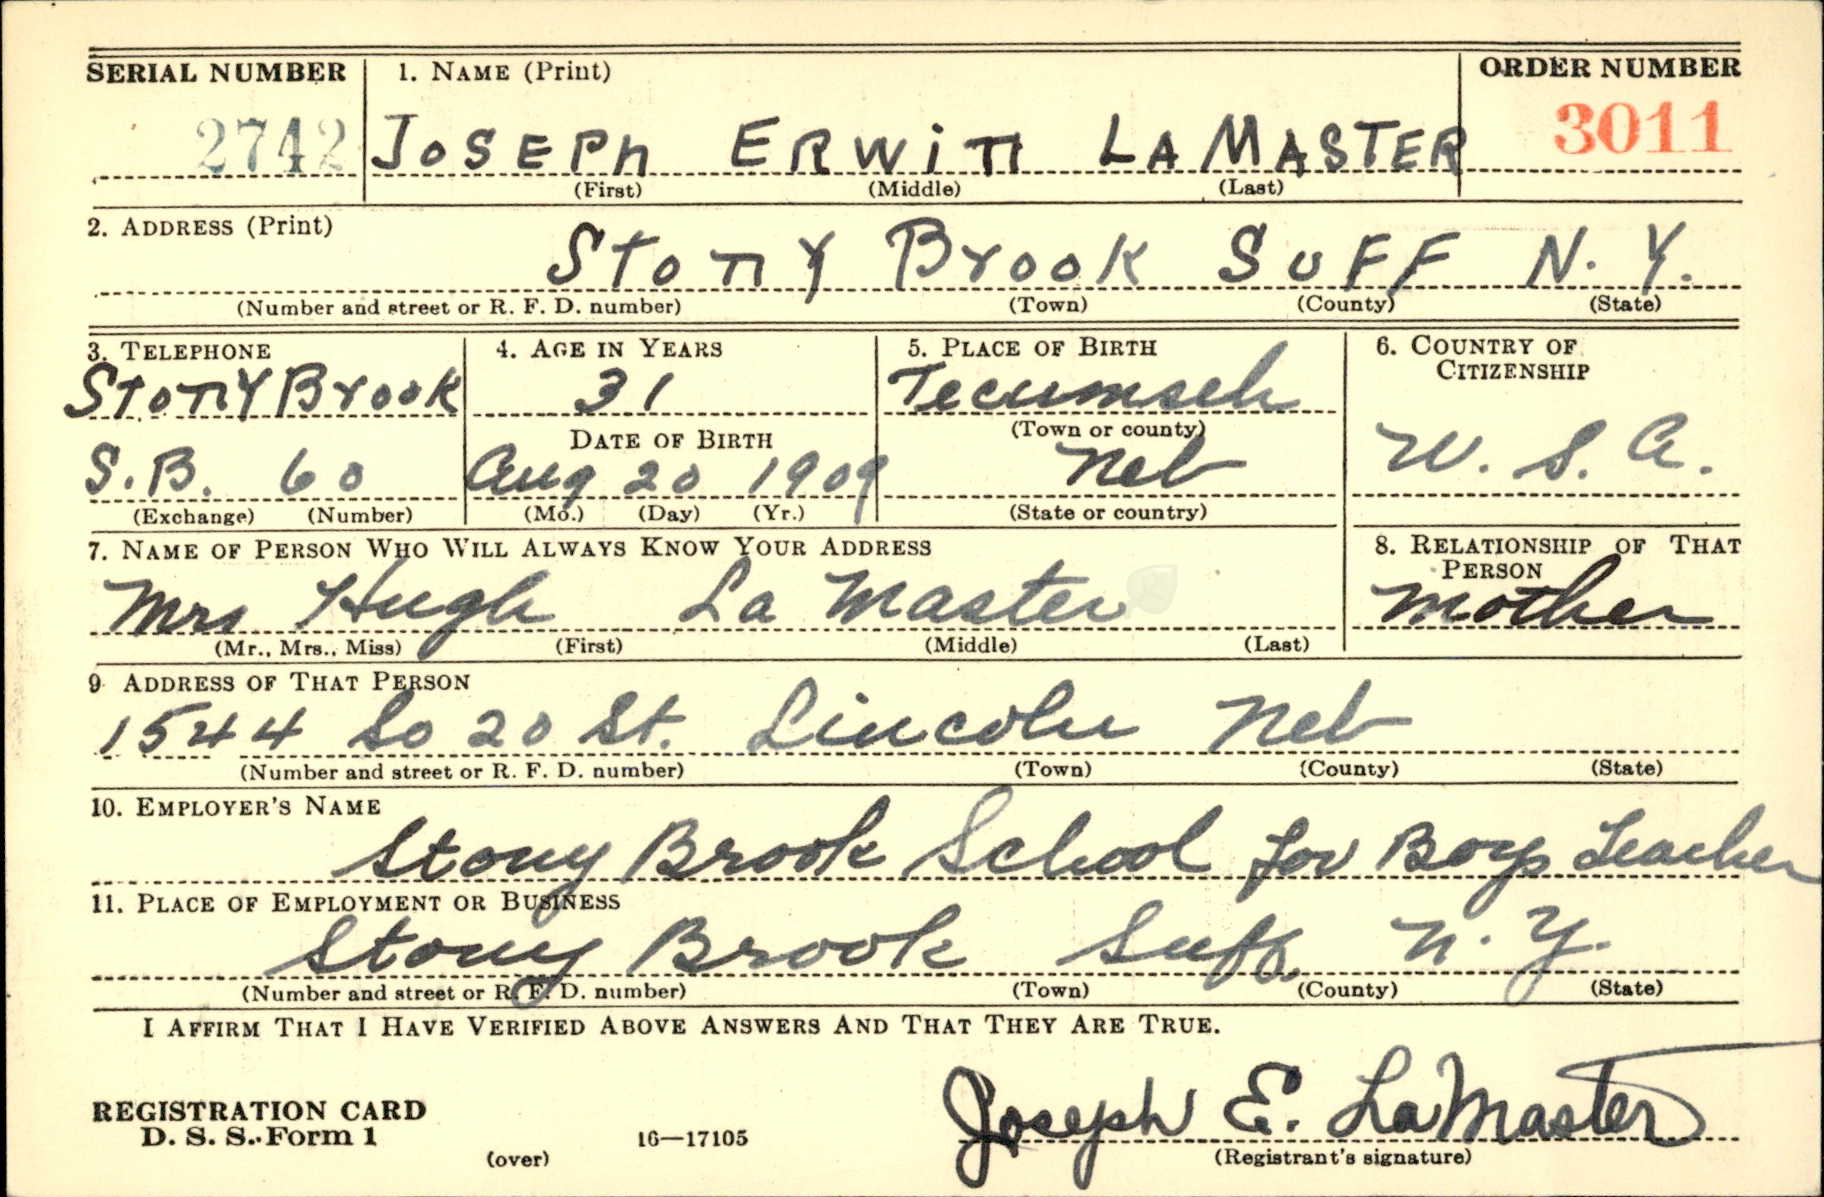 SERIAL NUMBER 1. NAME (Print) ORDER NUMBER
2742 JOSEPh ERWiTT LAMASTER 3011
(First) (Middle) (Last)
2. ADDRESS (Print)
StonY Brook SUFF N. Y.
(Number and street or R. F. D. number) (Town) (County) (State)
3. TELEPHONE 4. AGE IN YEARS 5. PLACE OF BIRTH 6. COUNTRY OF CITIZENSHIP
StonY Brook 31 Tecumseh
DATE OF BIRTH (Town or county)
S.B. 60 Aug 20 1909 Neb U. S. A.
(Exchange) (Number) (Mo.) (Day) (Yr.) (State or country)
7. NAME OF PERSON WHO WILL ALWAYS KNOW YOUR ADDRESS 8. RELATIONSHIP OF THAT PERSON
Mrs Hugh La Master Mother
(Mr., Mrs., Miss) (First) (Middle) (Last)
9 ADDRESS OF THAT PERSON
1544 So 20 St. Lincoln Neb
(Number and street or R. F. D. number) (Town) (County) (State)
10. EMPLOYER'S NAME
Stony Brook School for Boys Teacher
11. PLACE OF EMPLOYMENT OR BUSINESS
Stony Brook Suff. N. Y.
(Number and street or R. F. D. number) (Town) (County) (State)
I AFFIRM THAT I HAVE VERIFIED ABOVE ANSWERS AND THAT THEY ARE TRUE.
REGISTRATION CARD
D. S. S. Form 1 16—17105 Joseph E. LaMaster
(over) (Registrant's signature)